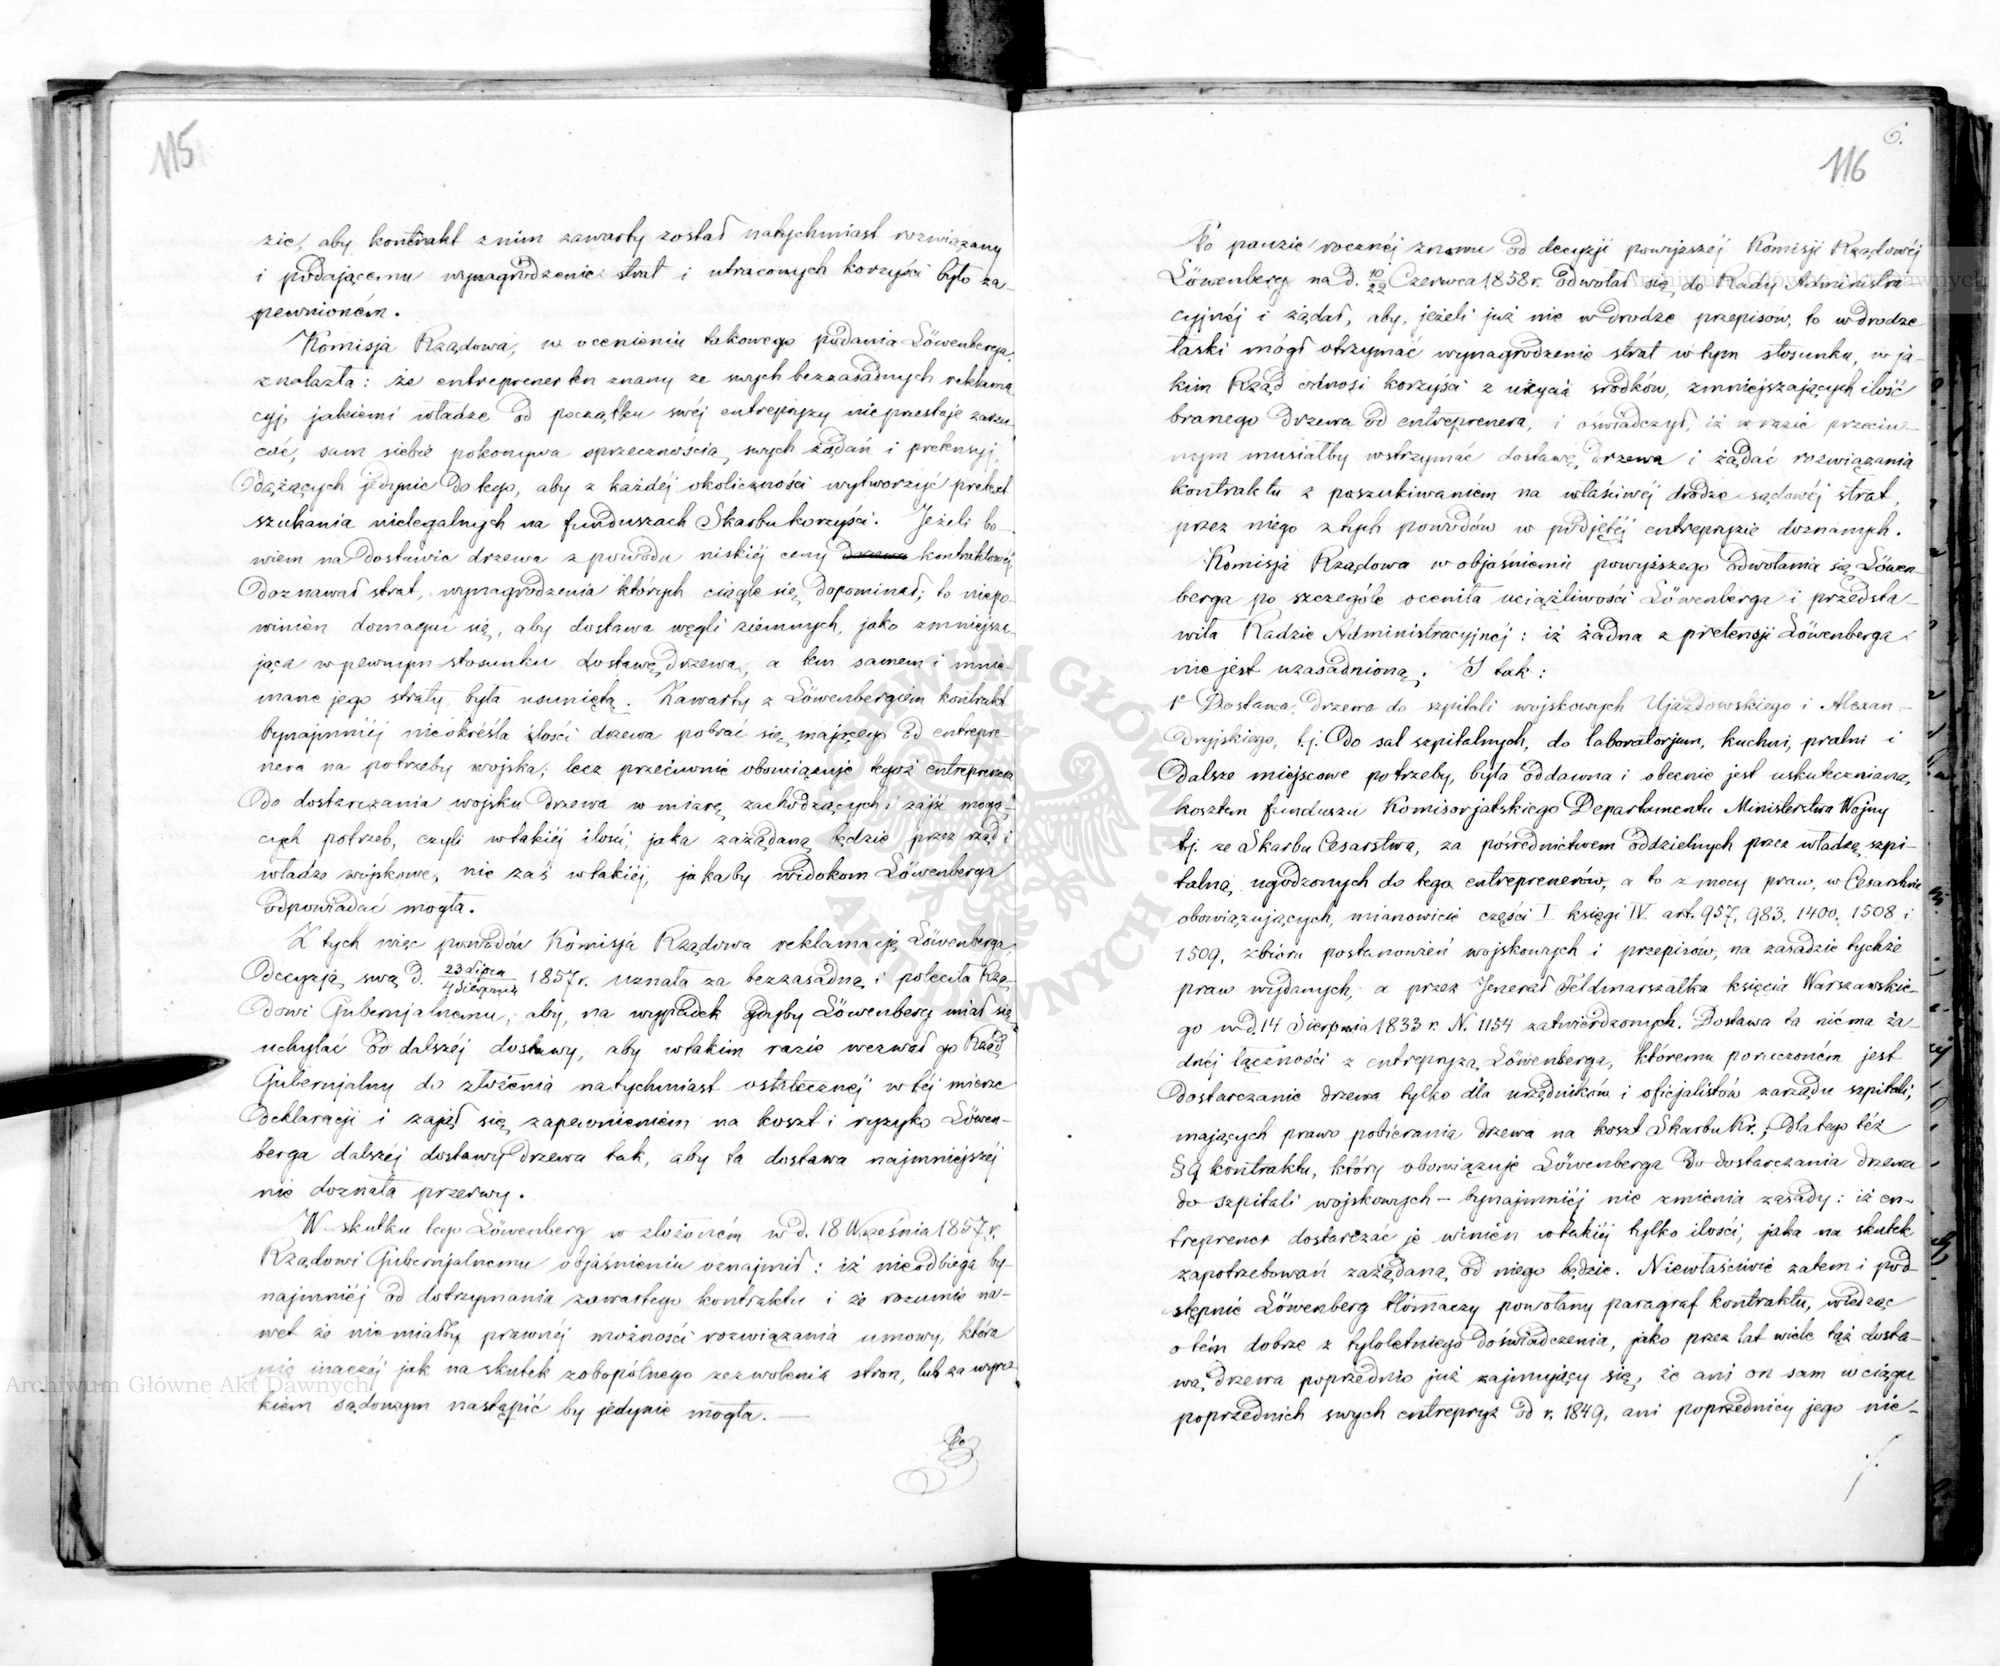 115
zie, aby kontrakt z nim zawarty został natychmiast rozwiązany
i podającemu wynagrodzenie strat i utraconych korzyści było za-
pewnioném.
Komisja Rządowa, w ocenieniu takowego podania Löwenberga,
znalazła: że entreprener ten znany ze swych bezzasadnych reklama
cyj, jakiemi władze od początku swéj entrepryzy nieprzestaje zarzu-
cać, sam siebie pokonywa sprzecznością swych żądań i pretensyj,
dążących jedynie do tego, aby z każdéj okoliczności wytworzyć pretext
szukania nielegalnych na funduszach Skarbu korzyści. Jeżeli bo-
wiem na dostawie drzewa z powodu niskiéj ceny drzewa kontraktowéj
doznawał strat, wynagrodzenia których ciągle się dopominał; to niepo-
winien domagać się, aby dostawa węgli ziemnych, jako zmniejsza-
jąca w pewnym stosunku dostawę drzewa, a tem samem i mnie-
mane jego straty, była usuniętą. Zawarty z Löwenbergiem kontrakt
bynajmniéj nieokreśla ilości drzewa pobrać się mającego od entrepre-
nera na potrzeby wojska; lecz przeciwnie obowiązuje tegoż entreprenera
do dostarczania wojsku drzewa w miarę zachodzących i zajść mogą-
cych potrzeb, czyli w takiéj ilości, jaka zażądaną będzie przez rząd i
władze wojskowe, nie zaś w takiéj, jakaby widokom Löwenberga
odpowiadać mogła.
Z tych więc powodów Komisja Rządowa reklamację Löwenberga,
decyzją swą d. 23 Lipca / 4 Sierpnia 1857 r. uznała za bezzasadną i poleciła Rzą-
dowi Gubernjalnemu, aby, na wypadek gdyby Löwenberg miał się
uchylać od dalszéj dostawy, aby w takim razie wezwał go Rząd
Gubernjalny do złożenia natychmiast ostatecznéj w téj mierze
deklaracji i zajął się zapewnieniem na koszt i ryzyko Löwen-
berga dalszéj dostawy drzewa tak, aby ta dostawa najmniejszéj
nie doznała przerwy.
W skutku tego Löwenberg w złożoném w d. 18 Września 1857 r.
Rządowi Gubernjalnemu objaśnieniu oznajmił: iż nieodbiega by-
najmniéj od dotrzymania zawartego kontraktu i że rozumie na-
wet że niemiałby prawnéj możności rozwiązania umowy, która
nie inaczéj jak na skutek zobopólnego zezwolenia stron, lub za wyro-
kiem sądowym nastąpić by jedynie mogła. —
Po
6.
116
Po pauzie rocznéj znowu od decyzji powyższéj Komisji Rządowéj
Löwenberg na d. 10/22 Czerwca 1858 r. odwołał się do Rady Administra
cyjnéj i żądał, aby, jeżeli już nie w drodze przepisów, to w drodze
łaski mógł otrzymać wynagrodzenie strat w tym stosunku, w ja-
kim Rząd odnosi korzyści z użycia srodków, zmniejszających ilość
branego drzewa od entreprenera, i oświadczył, iż w razie przeciw-
nym musiałby wstrzymać dostawę drzewa i żądać rozwiązania
kontraktu z poszukiwaniem na właściwéj drodze sądowéj strat,
przez niego z tych powodów w podjętéj entrepryzie doznanych.
Komisja Rządowa w objaśnieniu powyższego odwołania się Löwen-
berga po szczególe oceniła uciążliwości Löwenberga i przedsta-
wiła Radzie Administracyjnéj: iż żadna z pretensji Löwenberga
nie jest uzasadnioną. I tak:
1e Dostawa drzewa do szpitali wojskowych Ujazdowskiego i Alexan-
dryjskiego, t.j. do sal szpitalnych, do laboratorjum, kuchni, pralni i
dalsze miejscowe potrzeby, była oddawna i obecnie jest uskuteczniana,
kosztem funduszu Komisorjatskiego Departamentu Ministerstwa Wojny
tj. ze Skarbu Cesarstwa, za pośrednictwem oddzielnych przez władzę szpi-
talną ugodzonych do tego entreprenerów, a to z mocy praw, w Cesarstwie
obowiązujących, mianowicie części I księgi IV. art. 957, 983, 1400, 1508 i
1509, zbioru postanowień wojskowych i przepisów, na zasadzie tychże
praw wydanych, a przez Jenerał Feldmarszałka księcia Warszawskie-
go w d. 14 Sierpnia 1833 r. N. 1154 zatwierdzonych. Dostawa ta niema ża-
dnéj łączności z entrepryzą Löwenberga, któremu poruczoném jest
dostarczanie drzewa tylko dla urzędników i oficjalistów zarządu szpitali,
mających prawo pobierania drzewa na koszt Skarbu Kr.; dlatego téż
§ 9 kontraktu, który obowiązuje Löwenberga do dostarczania drzewa
do szpitali wojskowych — bynajmniéj nie zmienia zasady: iż en-
treprener dostarczać je winien w takiéj tylko ilości, jaka na skutek
zapotrzebowań zażądaną od niego będzie. Niewłaściwie zatem i pod-
stępnie Löwenberg tłómaczy powołany paragraf kontraktu, wiedząc
o tém dobrze z tyloletniego doświadczenia, jako przez lat wiele tąż dosta-
wą drzewa poprzednio już zajmujący się, że ani on sam w ciągu
poprzednich swych entrepryz od r. 1849, ani poprzednicy jego nie-
./.
Archiwum Główne Akt Dawnych
Archiwum Główne Akt Dawnych
ARCHIWUM GŁÓWNE AKT DAWNYCH · WARSZAWA